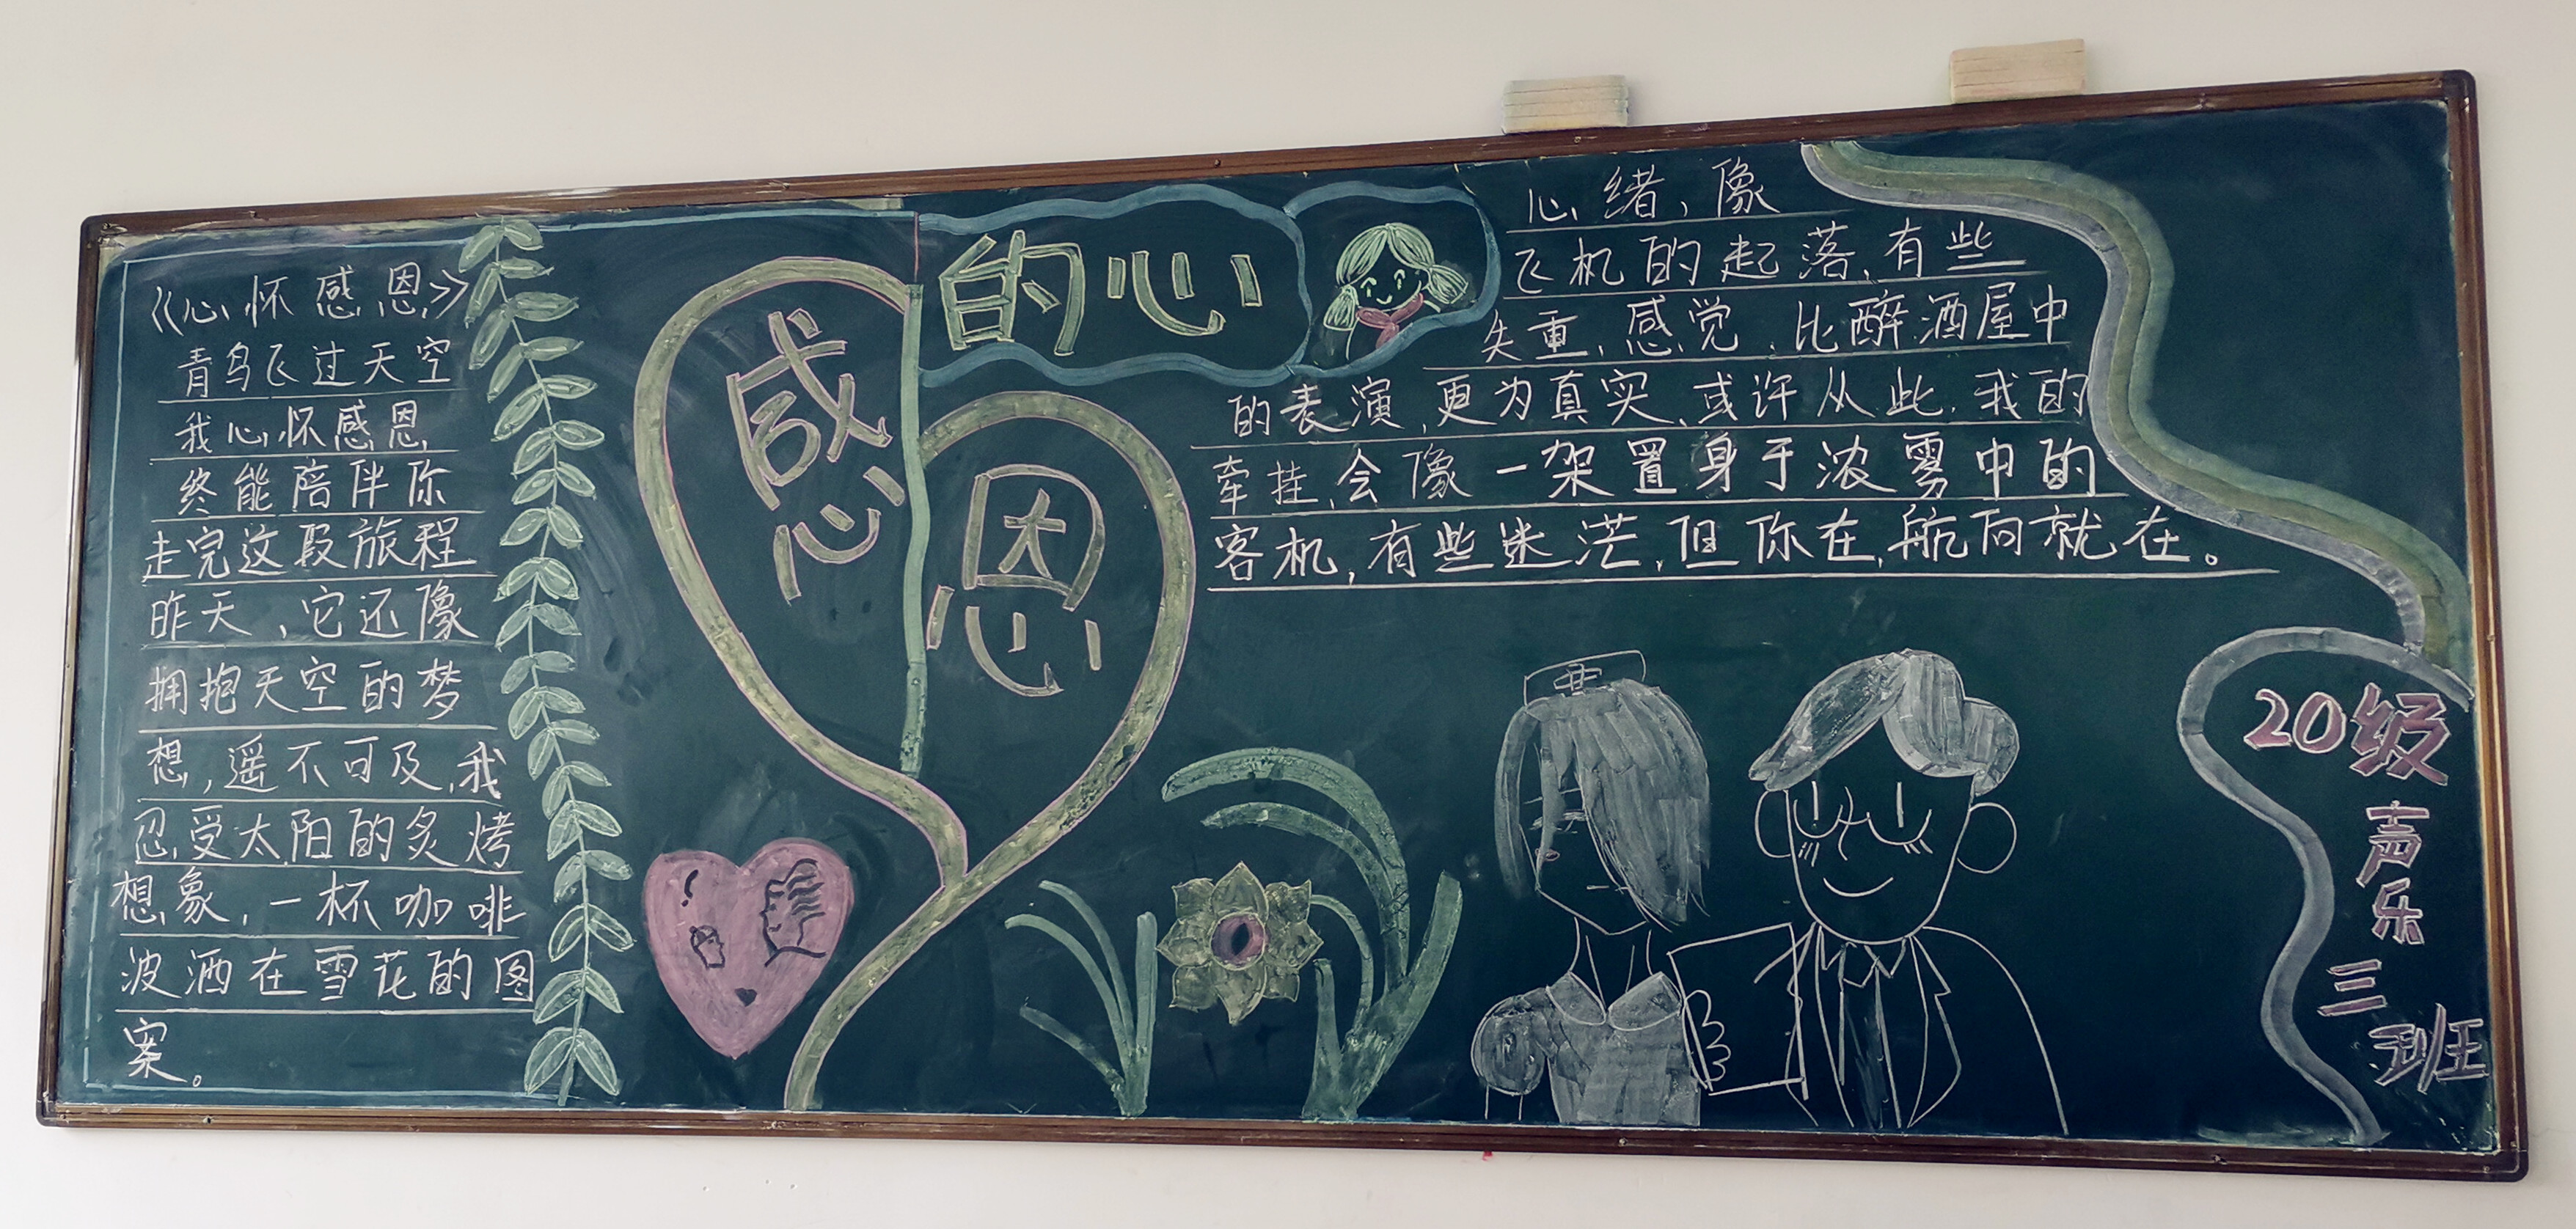 《心怀感恩》
青鸟飞过天空
我心怀感恩
终能陪伴你
走完这段旅程
昨天，它还像
拥抱天空的梦
想，遥不可及，我
忍受太阳的炙烤
想象，一杯咖啡
波洒在雪花的图
案。
感恩
的心
心绪，像
飞机的起落，有些
失重，感觉，比醉酒屋中
的表演，更为真实，或许从此，我的
牵挂，会像一架置身于浓雾中的
客机，有些迷茫，但你在，航向就在。
20级
声乐
三班